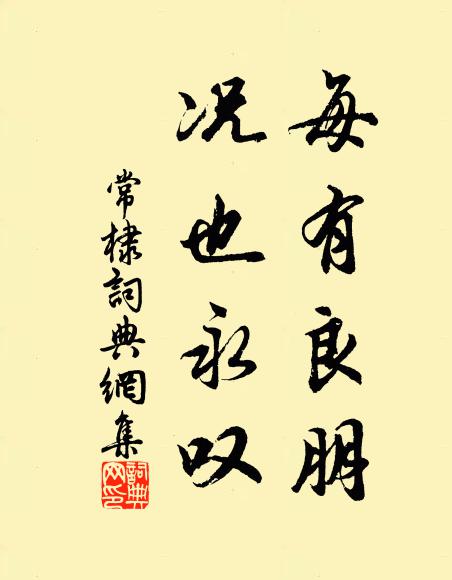 每有良朋
况也永叹
常棣詞典網集
詞典网印